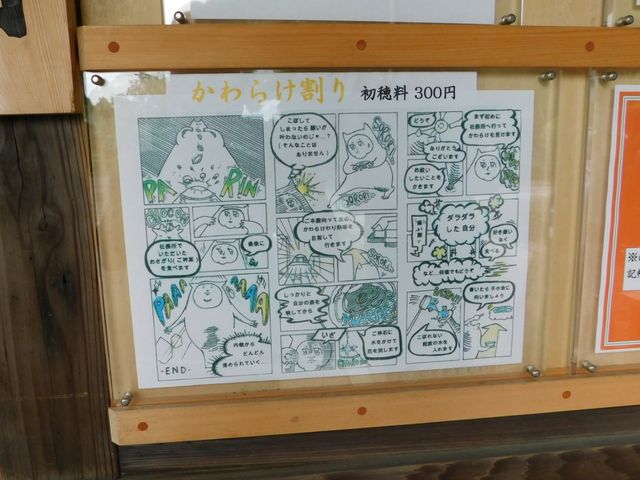 かわらけ割り 初穂料 300円
まず初めに
社務所へ行って
かわらけを受けます
どうぞ
ありがとう
ございます
お祓い
したいことを
かきます
ダラダラ
した自分
好き嫌い
なく
食べる
など、何個でもどうぞ
書いたら手水舎に
向いましょう
こぼれない
程度の水を
入れます
こぼして
しまったら願いが
叶わないのじゃ…?
(そんなことは
ありません)
SOROR
ご本殿向って左の
かわらけわり祭場を
目指して
行きます
しっかりと
自分の姿を
映してから
いざ
ご神石に
水をかけて
厄を流します
PA
RIN
社務所で
いただいた
おさがり(ご神菓
を食べます
最後に
PAAA
AAAA
内側から
どんどん
清められていく…
-END-